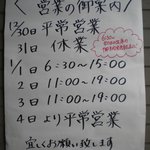 〈営業の御案内〉
12/30日 平常営業
31日 休業
1/1日 6:30〜15:00
2日 11:00〜19:00
3日 11:00〜19:00
4日より平常営業
宜しくお願い致します